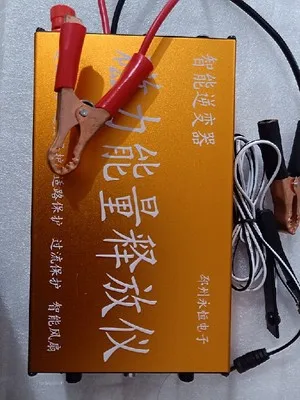 智能逆变器
力能量释放仪
邳州永恒电子
路保护 过流保护 智能风扇